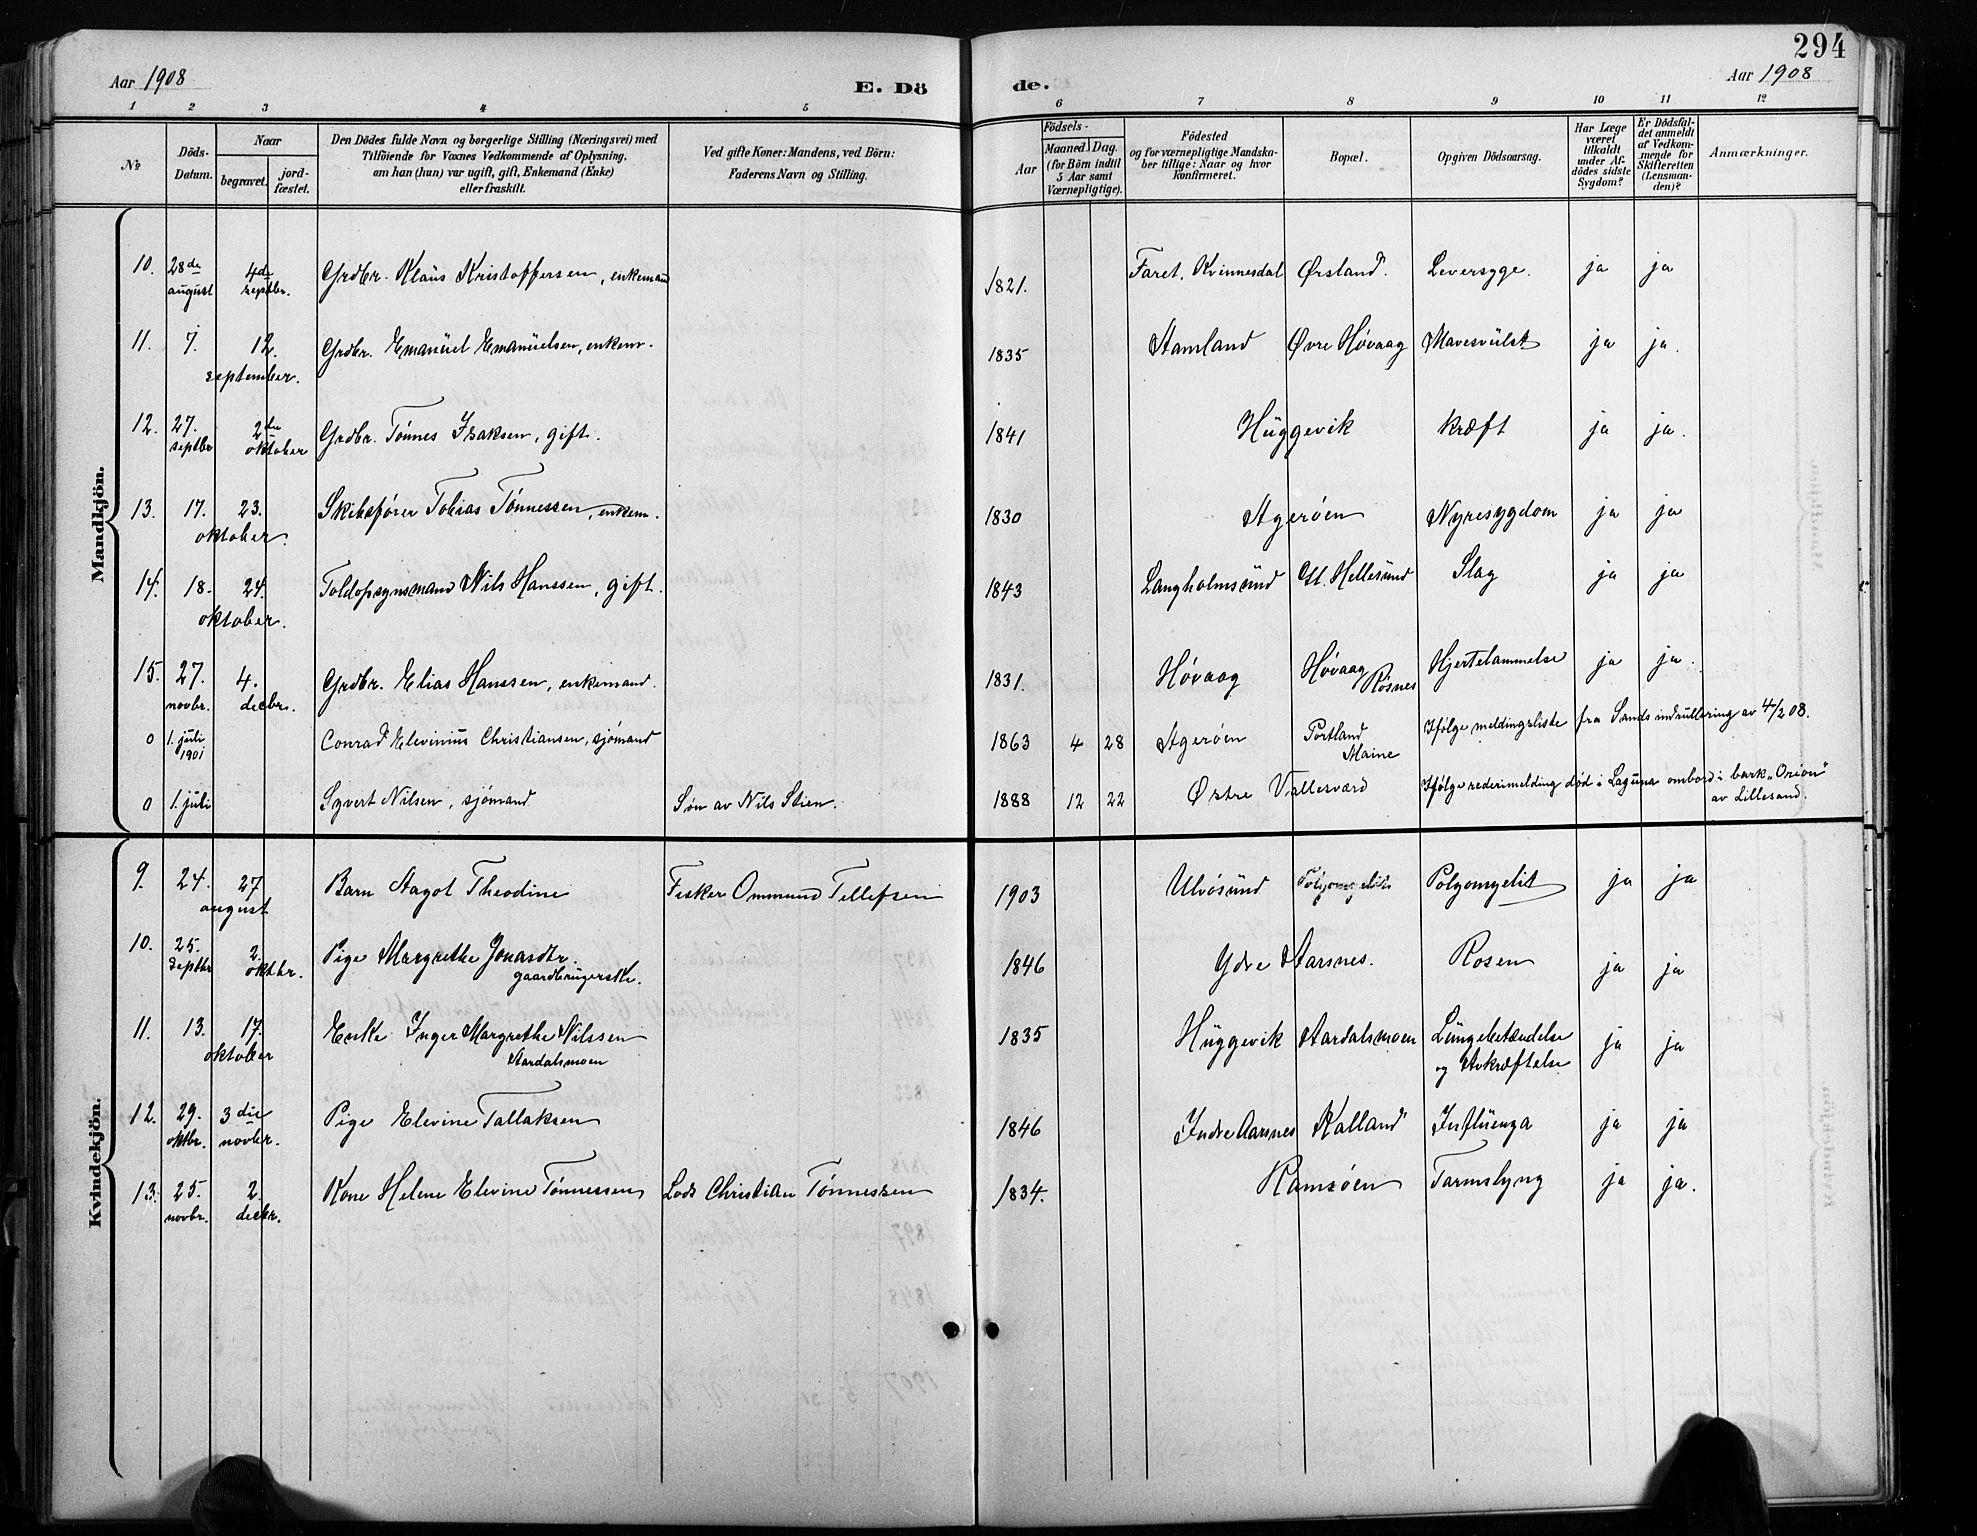 294
Aar 1908 E. Dö de. Aar 1908
1 2 3 4 5 6 7 8 9 10 11 12
No
Döds-Datum.
Naar
begravet. jord-fæstet.
Den Dödes fulde Navn og borgerlige Stilling (Næringsvei) med
Tilföiende for Voxnes Vedkommende af Oplysning,
om han (hun) var ugift, gift, Enkemand (Enke)
eller fraskilt.
Ved gifte Koner: Mandens, ved Börn:
Faderens Navn og Stilling.
Födsels-
Aar Maaned Dag.
(for Börn indtil
5 Aar samt
Værnepligtige).
Födested
og for værnepligtige Mandska-
ber tillige: Naar og hvor
konfirmeret.
Bopæl.
Opgiven Dödsaarsag.
Har Læge
været
tilkaldt
under Af-
dödes sidste
Sygdom?
Er Dödsfal-
det anmeldt
af Vedkom-
mende for
Skifteretten
(Lensman-
den)?
Anmærkninger.
Mandkjön.
10. 28de august 4de septbr. Grdbr. Klaus Kristoffersen, enkemand 1821. Faret, Kvinnesdal Ørsland. Leversyge. ja ja
11. 7. 12. september. Grdbr. Emanuel Emanuelsen, enkem. 1835 Stamland Øvre Høvaag Mavesvulst ja ja.
12. 27. septbr 2den oktober Grdbr. Tønnes Isaksen, gift. 1841 Huggevik kræft ja ja.
13. 17. 23. oktober. Skibsfører Tobias Tønnessen, enkem. 1830 Agerøen Nyresygdom ja ja
14. 18. 24. oktober. Toldopsynsmand Nils Hanssen, gift. 1843 Langholmsund Hellesund Slag ja ja
15. 27. novbr. 4. decbr. Grdbr. Elias Hanssen, enkemand. 1831. Høvaag Høvaag Røsnes Hjertelammelse ja ja.
0 1. juli 1901 Conrad Elevinius Christiansen, sjømand 1863 4 28 Agerøen Portland Maine Ifølge meldingsliste fra Sands indrullering av 4/2 08.
0 1. juli Syvert Nilsen, sjømand Søn av Nils Stien. 1888 12 22 Østre Vallesværd Ifølge rederimelding død i Laguna ombord i bark "Orion" av Lillesand.
Kvindekjön.
9. 24. 27 august Barn Aagot Theodine Fisker Ommund Tellefsen 1903 Ulvøsund Polyomyelit Polyomyelit ja ja
10. 25. septbr 2. oktbr. Pige Margrethe Jonasdtr. gaardbrugerske. 1846 Ydre Aarsnes. Rosen ja ja
11. 13. 17. oktober Enke Inger Margrethe Nilssen Aardalsmoen 1835 Huggevik Aardalsmoen Lungebetændelse og Avkræftelse ja ja
12. 29. oktbr. 3die novbr. Pige Elevine Tallaksen 1846 Indre Aarsnes Kalland Influenza ja ja
13. 25. novbr. 2. decbr. Kone Helene Elevine Tønnessen Lods Christian Tønnessen 1834. Ramsøen Tarmslyng ja ja.